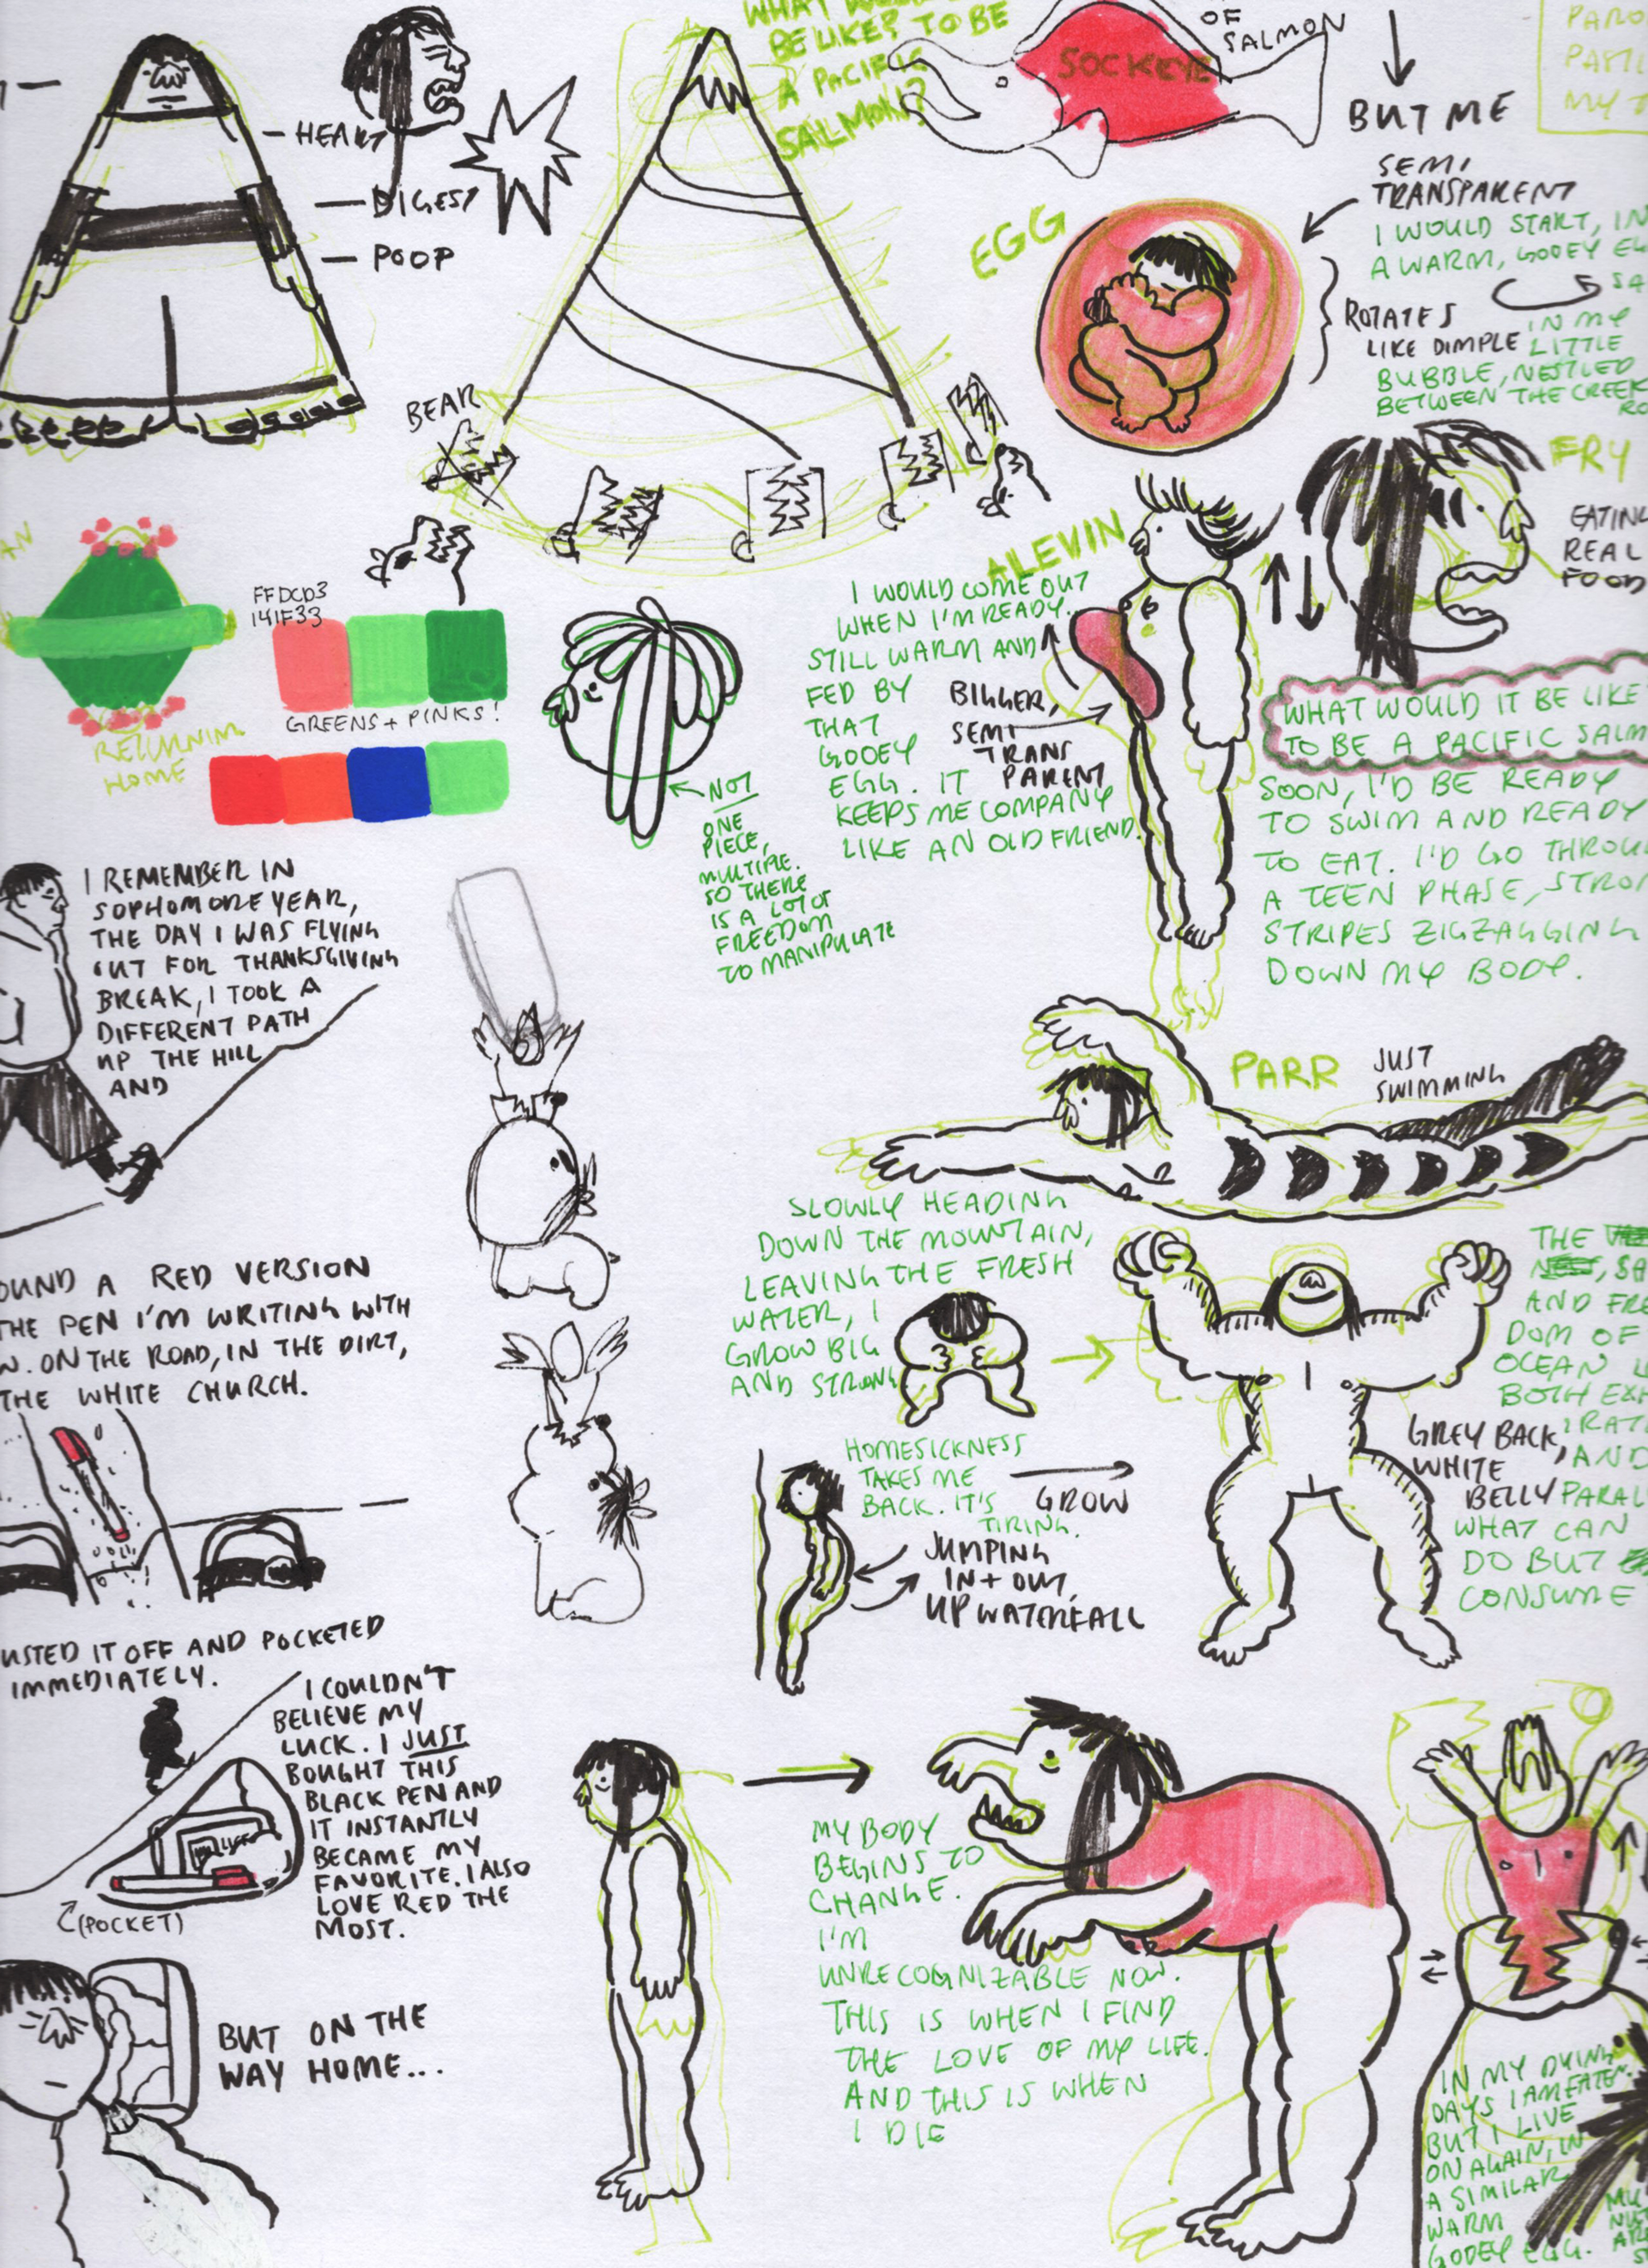 HEART
DIGEST
POOP
BE LIKE? TO BE
A PACIFIC
SALMON!?
OF
SALMON
SOCKEYE
BUT ME
SEMI
TRANSPARENT
EGG
I WOULD START, IN
A WARM, GOOEY
ROTATES
LIKE DIMPLE
IN MY
LITTLE
BUBBLE, NESTLED
BETWEEN THE CREEK
BEAR
FRY
EATING
REAL
FOOD
ALEVIN
I WOULD COME OUT
WHEN I'M READY.
STILL WARM AND
FED BY
THAT
GOOEY
EGG. IT
KEEPS ME COMPANY
LIKE AN OLD FRIEND.
BIGGER,
SEMI
TRANS
PARENT
FFDCD3
141F33
GREENS + PINKS!
RETURNING
HOME
NOT
ONE
PIECE,
MULTIPLE.
SO THERE
IS A LOT OF
FREEDOM
TO MANIPULATE
WHAT WOULD IT BE LIKE
TO BE A PACIFIC SALM
SOON, I'D BE READY
TO SWIM AND READY
TO EAT. I'D GO THROU
A TEEN PHASE, STRO
STRIPES ZIGZAGGING
DOWN MY BODY.
I REMEMBER IN
SOPHOMORE YEAR,
THE DAY I WAS FLYING
OUT FOR THANKSGIVING
BREAK, I TOOK A
DIFFERENT PATH
UP THE HILL
AND
PARR
JUST
SWIMMING
OUND A RED VERSION
THE PEN I'M WRITING WITH
W. ON THE ROAD, IN THE DIRT,
THE WHITE CHURCH.
SLOWLY HEADING
DOWN THE MOUNTAIN,
LEAVING THE FRESH
WATER, I
GROW BIG
AND STRONG
THE
AND FRE
DOM OF
OCEAN
BOTH
IRAT
AND
PARAL
WHAT CAN
DO BUT
CONSUME
GREY BACK,
WHITE
BELLY
HOMESICKNESS
TAKES ME
BACK. IT'S
TIRING.
GROW
JUMPING
IN + OUT,
UP WATERFALL
USTED IT OFF AND POCKETED
IMMEDIATELY.
I COULDN'T
BELIEVE MY
LUCK. I JUST
BOUGHT THIS
BLACK PEN AND
IT INSTANTLY
BECAME MY
FAVORITE. I ALSO
LOVE RED THE
MOST.
(POCKET)
BUT ON THE
WAY HOME...
MY BODY
BEGINS TO
CHANGE.
I'M
UNRECOGNIZABLE NOW.
THIS IS WHEN I FIND
THE LOVE OF MY LIFE.
AND THIS IS WHEN
I DIE
IN MY DYING
DAYS I AM EATEN.
BUT I LIVE
ON AGAIN, IN
A SIMILAR
WARM
GOOEY EGG.